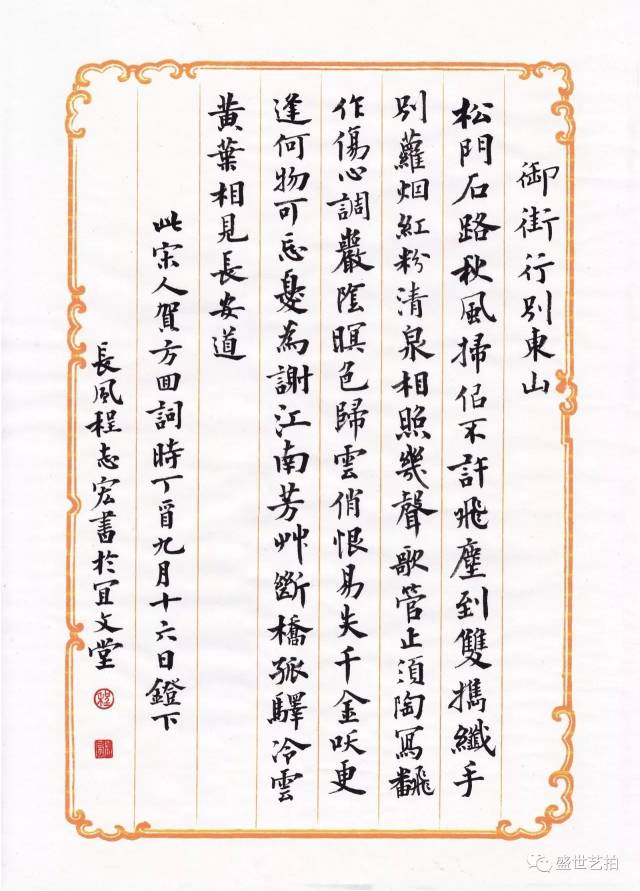 御街行別東山
松門石路秋風掃佀不許飛塵到雙攜纖手
別蘿烟紅粉清泉相照幾聲歌管正須陶冩飜
作傷心調巖陰暝色歸雲俏恨易失千金咲更
逢何物可忘憂為謝江南芳艸斷橋孤驛冷雲
黃葉相見長安道
此宋人賀方回詞時丁酉九月十六日鐙下
長風程志宏書於宜文堂
盛世艺拍